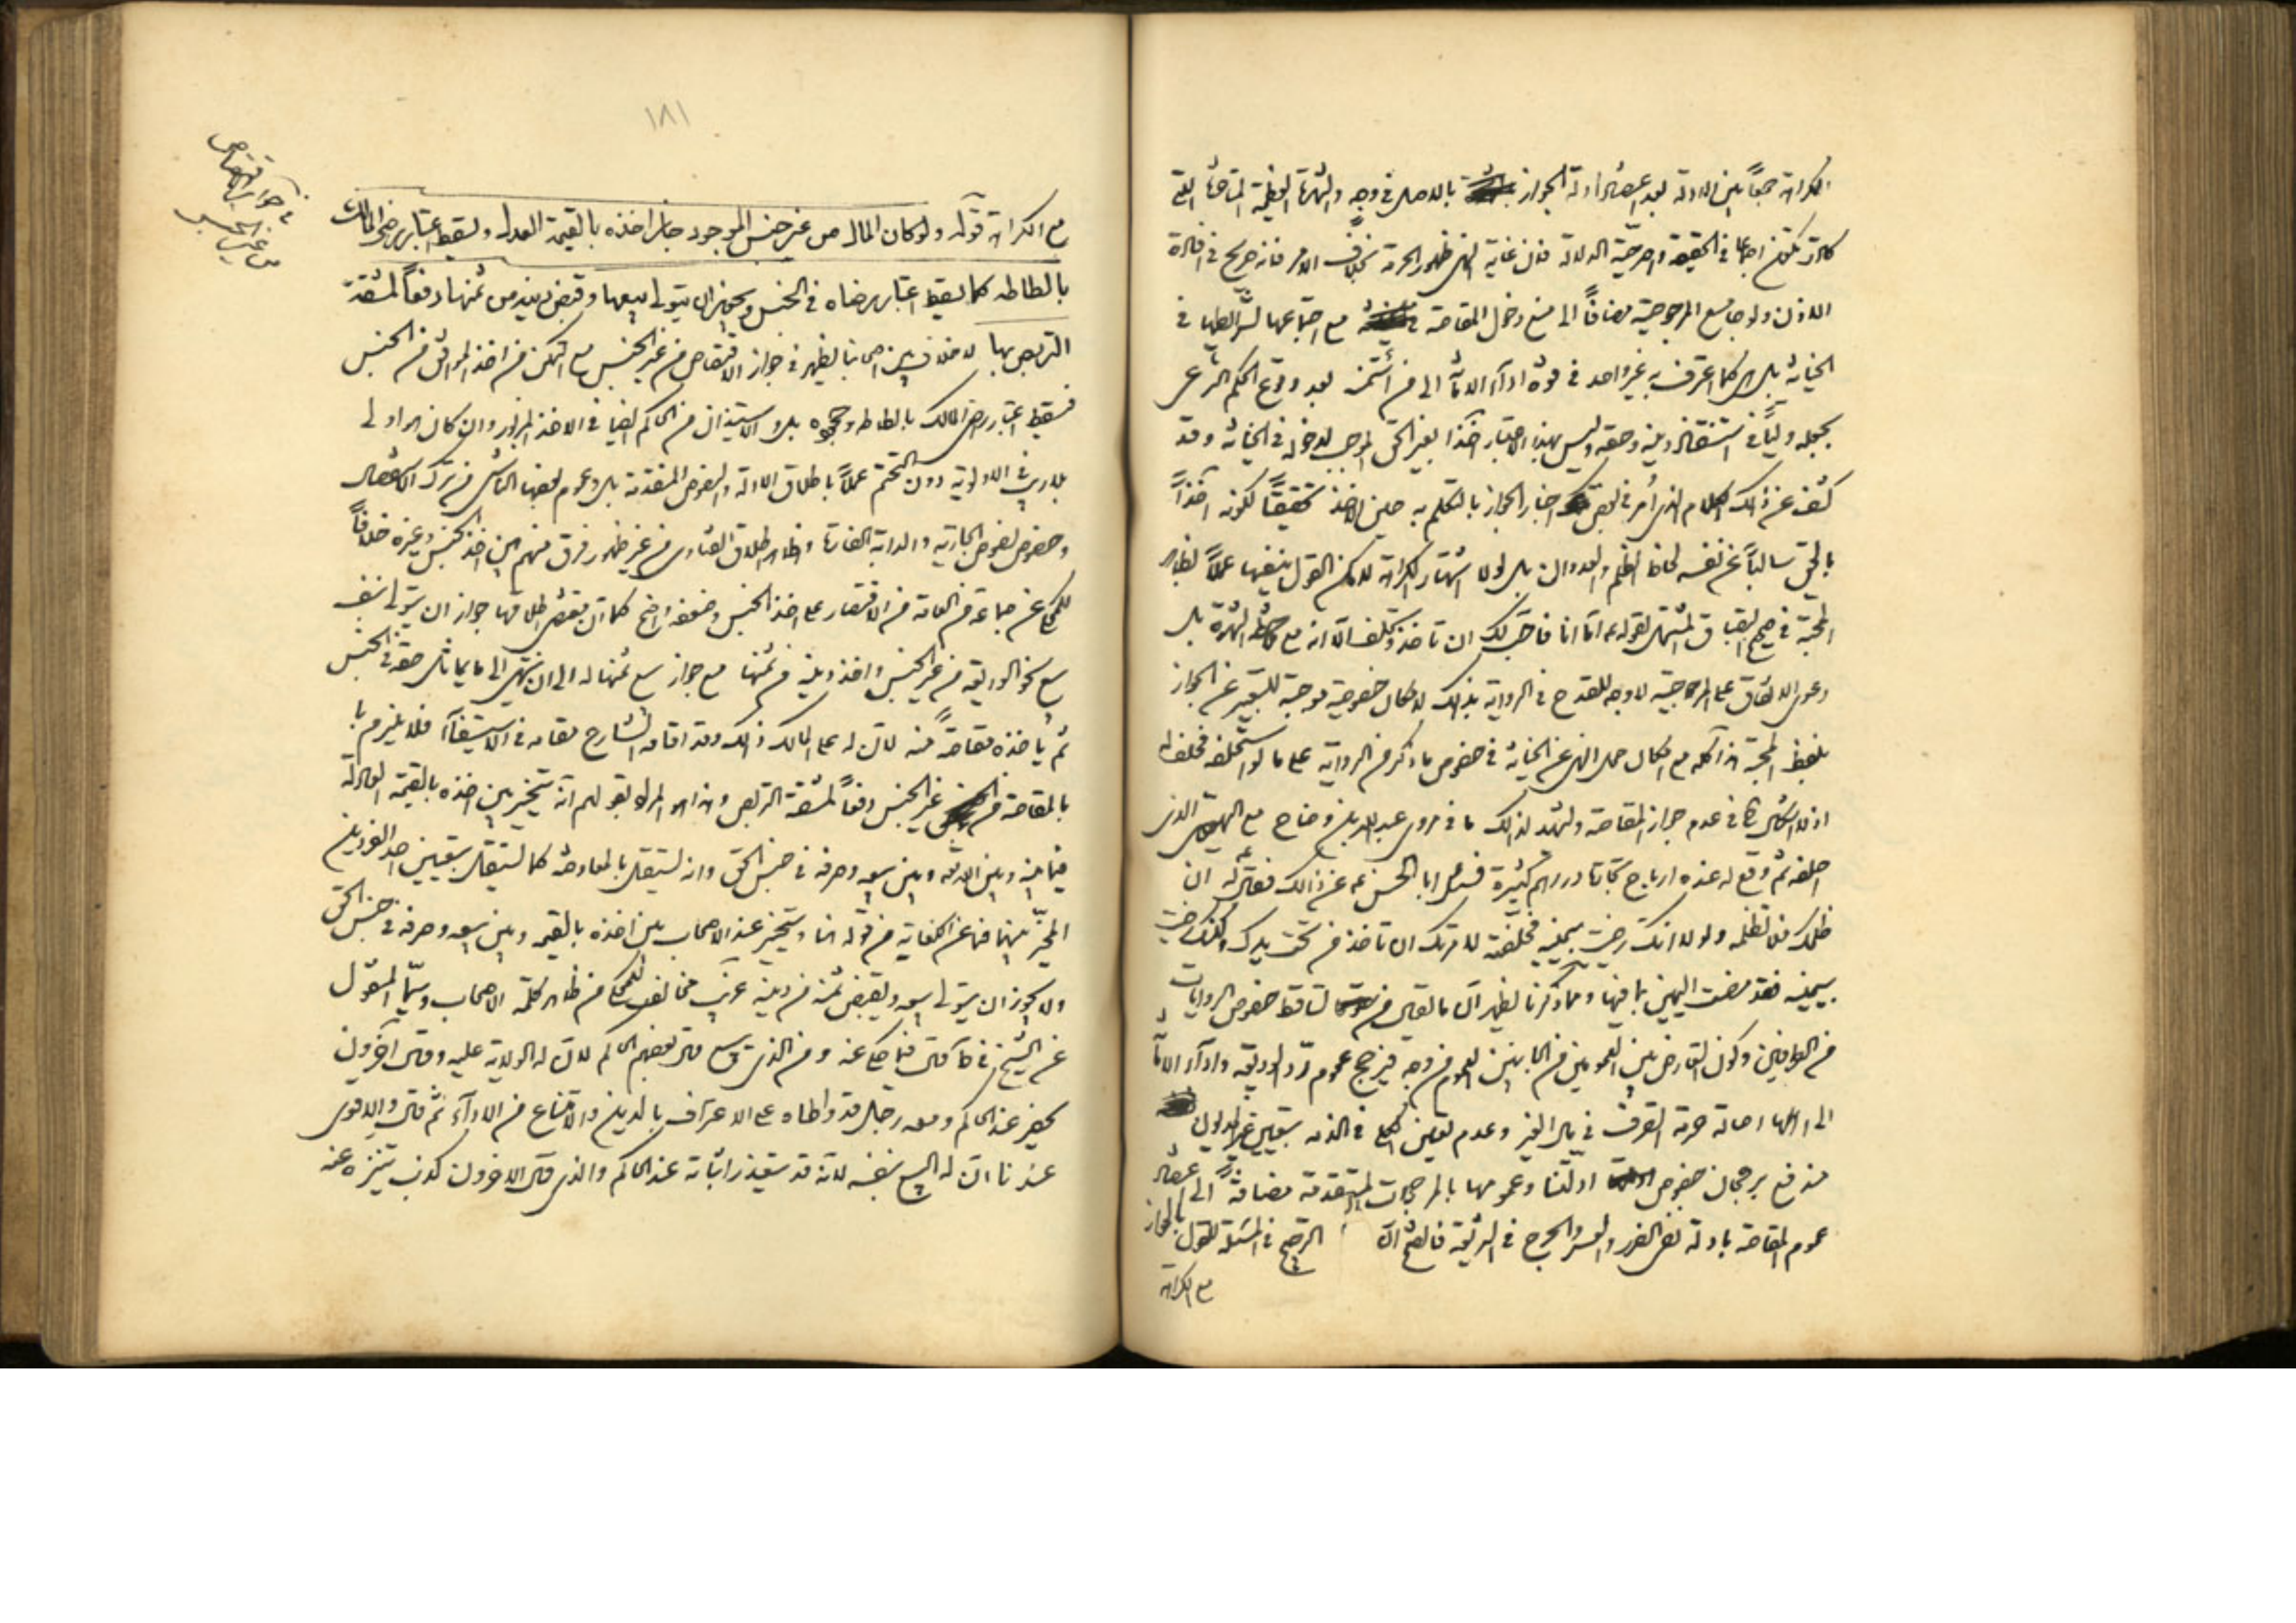 الكراهة جمعًا بين الادلة بعد اعتضاد ادلة الجواز بالاصل في وجه والشهرة العظيمة المتاخرة التي
كادت تكون اجماعا في الحقيقة وارجحية الدلالة فان غاية النهي ظهور الحرمة بخلاف الامر فانه صريح في افادة
الاذن ولو جامع المرجوحية مضافًا الى منع دخول المقاصة في مع اجتماعها لشرائطها في
الخيانة بل كما اعترف به غير واحد في قوة اداء الامانة الى من ائتمن بعد وقوع الحكم الشرعي
بجعله وليًا في استنقاذ دينه وحقه وليس بهذا الاعتبار اخذا بغير الحق الموجب لدخوله في الخيانة وقد
كشف عن ذلك الكلام الذي امر في بعض اخبار الجواز بالتكلم به حين الاخذ تحقيقًا لكونه اخذًا
بالحق سالبًا عن نفسه لحاظ الظلم والعدوان بل لولا اشتهار الكراهة لامكن القول بنفيها عملًا بظاهر
المحبة في صحيح البقباق المشتمل لقوله ع اما انا فاحب لك ان تاخذ وتحلف الا انه مع ملاحظة الشهرة بل
دعوى الاتفاق على المرجوحية لا وجه للقدح في الرواية بذلك لاحتمال خصوصية موجبة للتعبير عن الجواز
بلفظ المحبة هذا كله مع احتمال حمل النهي عن الخيانة في خصوص ما ذكر من الرواية على ما لو استحلفه فحلف له
اذ لا اشكال في عدم جواز المقاصة ويشهد لذلك ما في مروي عبد الله بن وضاح مع اليهودي الذي
احلفه ثم وقع له عنده ارباح تجارة ودراهم كثيرة فسئل ابا الحسن ع عن ذلك فقال له ان
ظلمك فلا تظلمه ولولا انك رضيت بيمينه فحلّفته لامرتك ان تاخذ من تحت يدك ولكنك رضيت
بيمينه فقد مضت اليمين بما فيها ومما ذكرنا يظهر ان ما يقال من تساقط خصوص الروايات
من الطرفين وكون التعارض بين العمومين من الجانبين العموم من وجه فيرجح عموم رد الوديعة واداء الامانة
الى اهلها اصالة حرمة التصرف في مال الغير وعدم تعيين الكلي في الذمة بتعيين غير المديون
مندفع برجحان خصوص ادلتنا وعمومها بالمرجحات المتقدمة مضافًا الى اعتضاد
عموم المقاصة بادلة نفي الضرر والعسر والحرج في الشريعة فالصحيح ان الترجيح في المسئلة للقول بالجواز
مع الكراهة
١٨١
في جواز الاقتصاص
من غير الجنس
مع الكراهة قوله ولو كان المال من غير جنس الموجود جاز اخذه بالقيمة العدل ويسقط اعتبار رضى المالك
بالطاطه كما يسقط اعتبار رضاه في الجنس ويجوز ان يتولى بيعها وقبض دينه من ثمنها دفعًا لمشقة
التربص بها لا خلاف بين اصحابنا يظهر في جواز الاقتصاص من غير الجنس مع التمكن من اخذ الموافق من الجنس
فيسقط اعتبار رضى المالك بالطاطه وجحوده بل والاستيذان من الحاكم ايضا في الاخذ المزبور وان كان هو اولى
بلا ريب في الاولوية دون التحتم عملًا باطلاق الادلة والنصوص المتقدمة بل وعموم بعضها الناشي من ترك الاستفصال
وخصوص نصوص الجارية والدابة الفارهة وظاهر اطلاق الفتاوى من غير ظهور فرق منهم بين اخذ الجنس وغيره خلافًا
للمحكي عن جماعة من العامة من الاقتصار على اخذ الجنس وضعفه واضح كما ان مقتضى اطلاقها جواز ان يتولى بنفسه
بيع نحو الوديعة من غير الجنس واخذ دينه من ثمنها مع جواز بيع ثمنها له الى ان ينتهي الى ما يماثل حقه في الجنس
ثم ياخذه مقاصةً منه لان له على المالك ذلك وقد اقامه الشارع مقامه في الاستيفاء فلا يلزم با
بالمقاصة من غير الجنس دفعًا لمشقة التربص وهذا هو المراد بقولهم انه يتخير بين اخذه بالقيمة العادلة
فيما بينه وبين الله تع وبين بيعه وصرفه في جنس الحق وانه يستقل بالمعاوضة كما يستقل بتعيين احد الفردين
المخيّر بينهما فما عن الكفاية من قوله انما ويتخير عند الاصحاب بين اخذه بالقيمة وبين بيعه وصرفه في جنس الحق
ولا يجوز ان يتولى بيعه ويقبض ثمنه من دينه غريب مخالف للمحكي من ظاهر كلمة الاصحاب وسيّما المنقول
عن الشيخ في ط قال فيما حكي عنه ومن الذي يبيع قال بعضهم الحاكم لان له الولاية عليه وقال آخرون
يحضر عند الحاكم ومعه رجل قد واطاه على الاعتراف بالدين والامتناع من الاداء ثم قال والاقوى
عندنا ان له البيع بنفسه لانه قد يتعذر اثباته عند الحاكم والذي قال الاخرون كذب يتنزه عنه